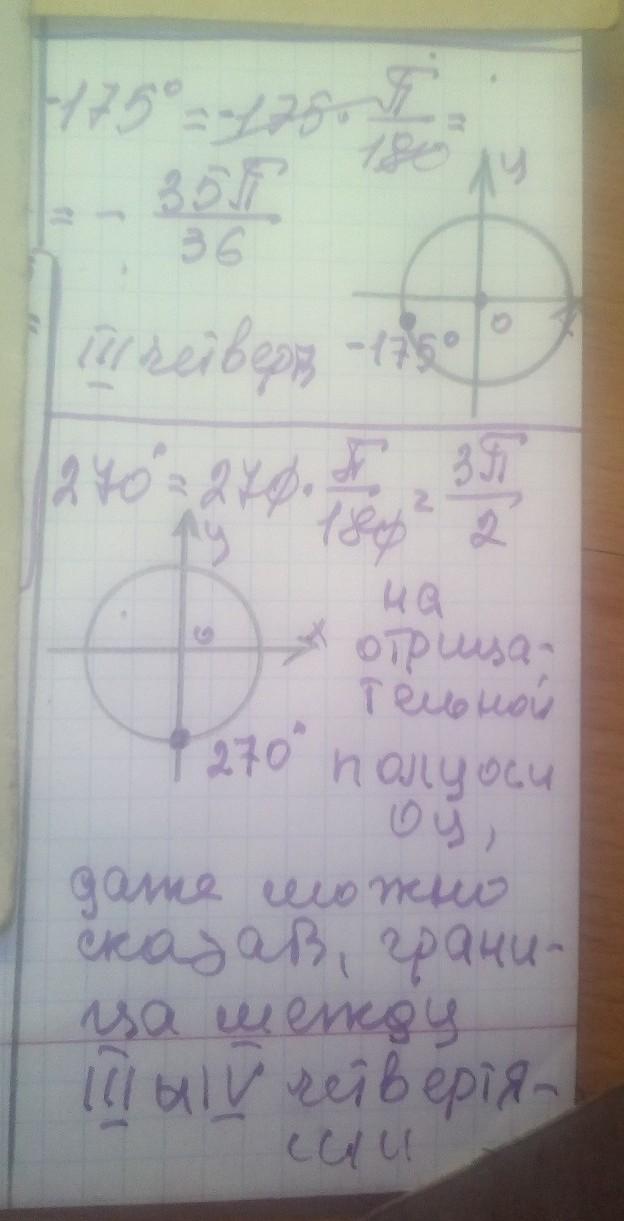 -175° = -175 · π/180 =
= - 35π/36
y
x
0
III четверть -175°
270° = 270 · π/180 = 3π/2
y
x
0
270°
на
отрица-
тельной
полуоси
Оy,
даже можно
сказать, грани-
ца между
III и IV четвертя-
ми